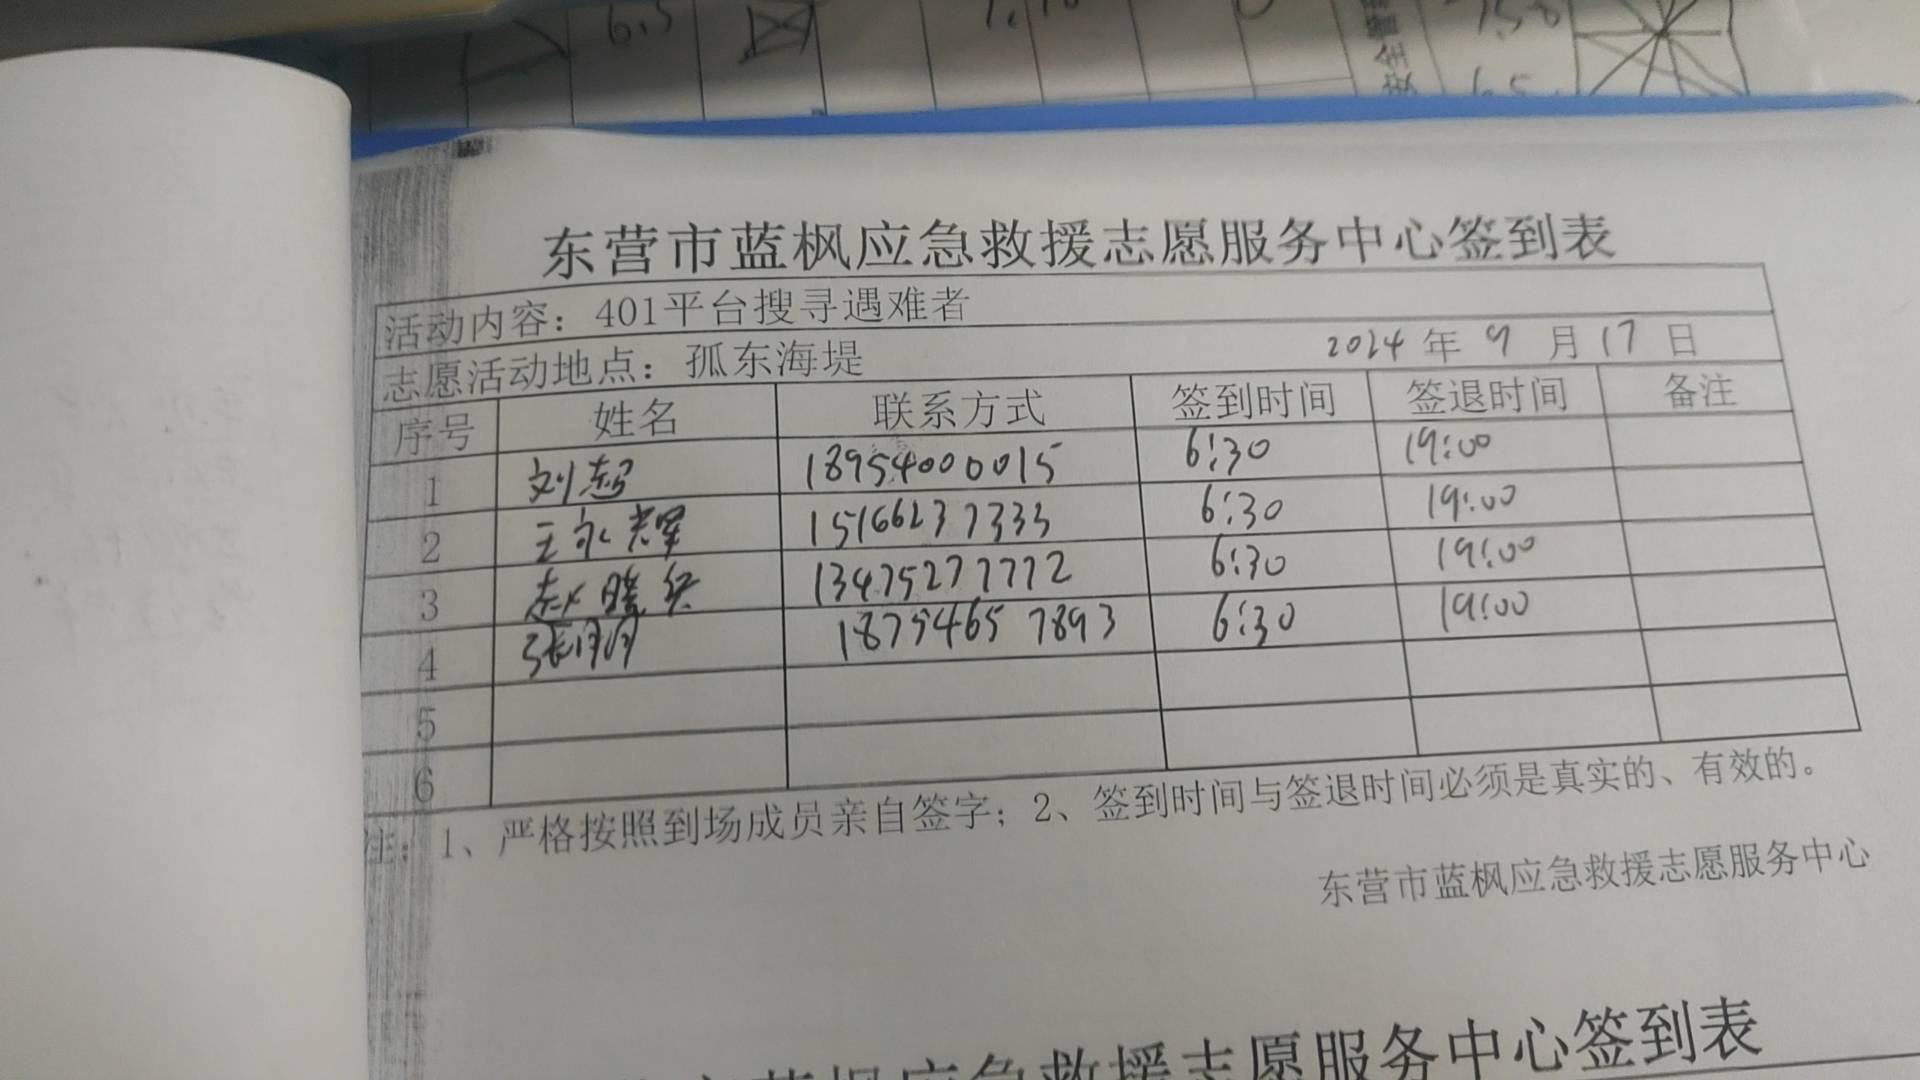 6.5
安全管
15.0
6.5
东营市蓝枫应急救援志愿服务中心签到表
活动内容：401平台搜寻遇难者
志愿活动地点：孤东海堤 2024年9月17日
序号 姓名 联系方式 签到时间 签退时间 备注
1 刘超 18954000015 6:30 19:00
2 王永辉 15166237333 6:30 19:00
3 赵晓兵 13475277772 6:30 19:00
4 张丹丹 18754657893 6:30 19:00
5
6
注：1、严格按照到场成员亲自签字；2、签到时间与签退时间必须是真实的、有效的。
东营市蓝枫应急救援志愿服务中心
蓝枫应急救援志愿服务中心签到表